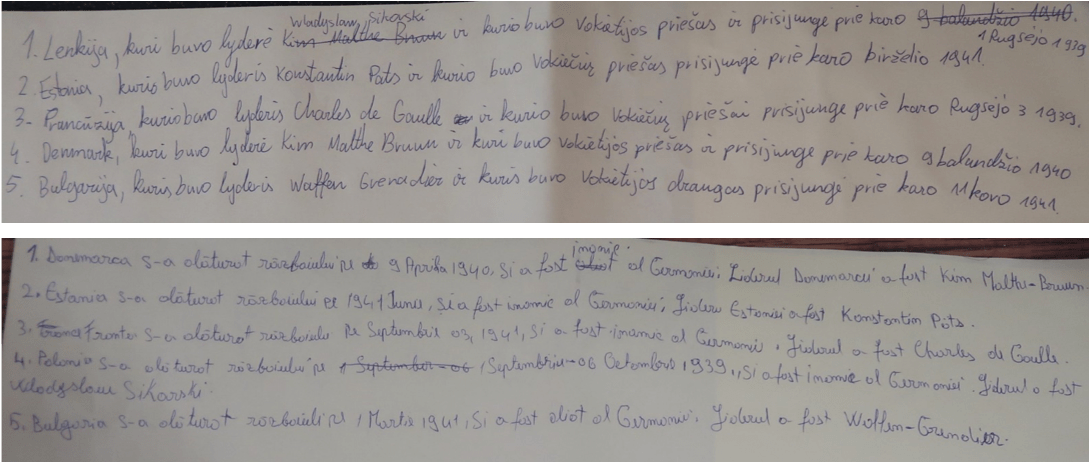 Wladyslaw Sikorski
1. Lenkija, kuri buvo lyderė Kim Malthe Bruun ir kurio buvo Vokietijos priešas ir prisijungė prie karo 9 balandžio 1940.
1 Rugsėjo 1939
2. Estonia, kuris buvo lyderis Konstantin Pats ir kurio buvo Vokiečių priešas prisijungė prie karo birželio 1941.
3. Prancūzija, kurio buvo lyderis Charles de Gaulle ir kurio buvo Vokiečių priešai prisijungė prie karo Rugsėjo 3 1939.
4. Denmark, kuri buvo lyderė Kim Malthe Bruun ir kuri buvo Vokietijos priešas ir prisijungė prie karo 9 balandžio 1940
5. Bulgarija, kuris buvo lyderis Waffen Grenadier ir kuris buvo Vokietijos draugas prisijungė prie karo 1 kovo 1941.
inamic.
1. Danemarca s-a alăturat războiului pe 9 Aprilie 1940, și a fost al Germaniei; Liderul Danemarcei a fost Kim Malthe-Bruun.
2. Estania s-a alăturat războiului pe 1941 Junie, și a fost inamic al Germaniei; Jideru Estoniei a fost Konstantin Päts.
3. Franta s-a alăturat războiulu pe Septembrie 03, 1941, și a fost inamic al Germaniei. Jiderul a fost Charles de Gaulle.
4. Polonia s-a alăturat războiului pe 1 September-06 1 Septembrie-06 Octombrie 1939, Și a fost inamic al Germaniei. Jiderul a fost
Wladyslaw Sikarski.
5. Bulgaria s-a alăturat războiului pe 1 Martie 1941, și a fost aliat al Germaniei. Jiderul a fost Waffen-Grenadier.